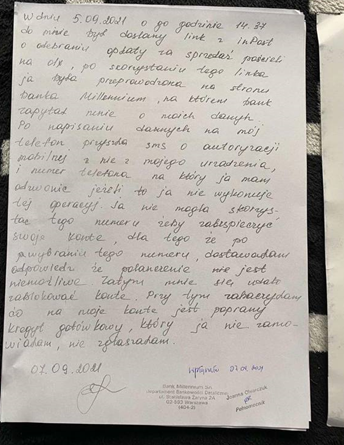 W dniu 5.09.2021 o godzinie 14.37
do mnie był dostany link z inPost
o odebraniu opłaty za sprzedaż pościeli
na olx, po scorystaniu tego linka
ja była przeprowodzona na stronu
banka Millennium, na którem bank
zapytał mnie o moich danych
Po napisaniu dannych na mój
telefon przyszła sms o autoryzacji
mobilnej z nie z mojego urządzenia,
i numer telefona na który ja mam
dzwonić jeżeli to ja nie wykonuję
tej operacji. Ja nie mogła skorys-
tać tego numeru żeby zabezpieczyć
swoje konte, dla tego że po
wybraniu tego numeru, dostawałam
odpowiedź że połączenie nie jest
niemożliwe. Zatym mnie się udało
zablokować konte. Przy tym
że na moje konte jest
kredyt gotówkowy, który ja nie zamo-
wiałam, nie zgłaszałam.
07.09.2021
wpłynęło 07.09.2021
Bank Millennium SA
ul. Stanisława Żaryna 2A
02-593 Warszawa
Joanna